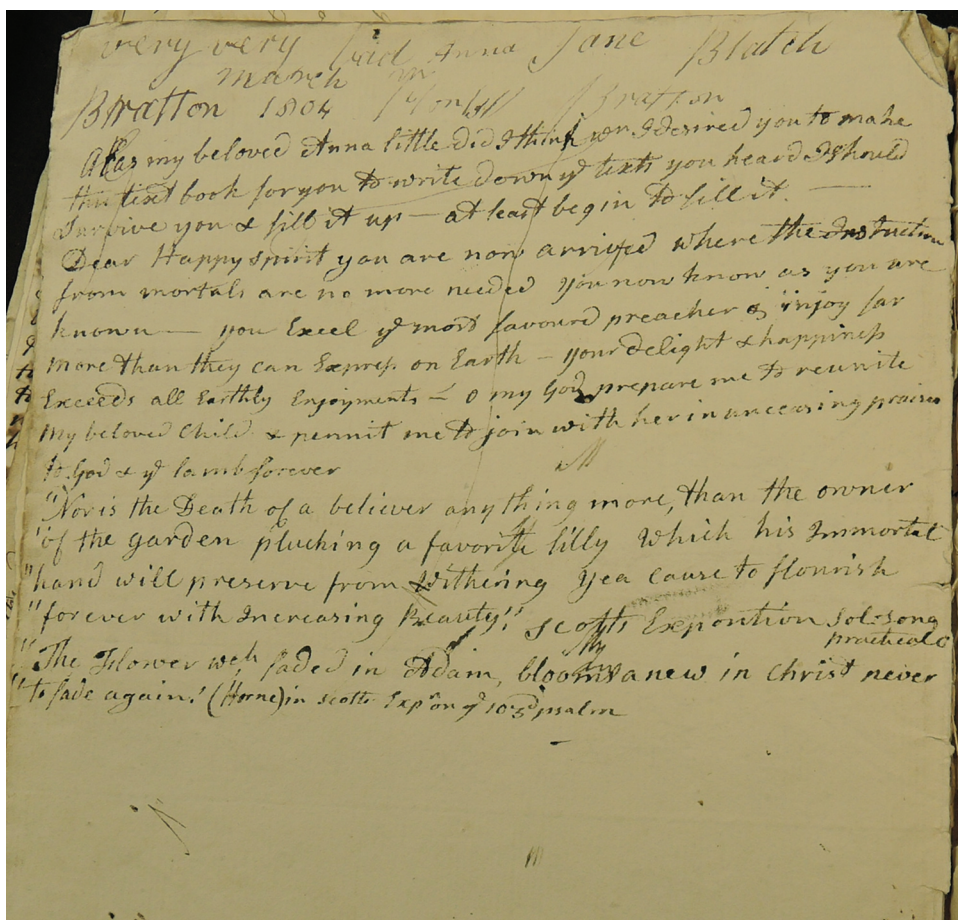 very very Anna Jane Blatch
march
Bratton 1804 Bratton
Alas my beloved Anna little did I think wn I desired you to make
this text book for you to write down ye texts you heard I should
Survive you & fill it up — at least begin to fill it. —
Dear Happy spirit you are now arrived where the Instruction
from mortals are no more needed you now know as you are
known — you Excel ye most favoured preacher & injoy far
more than they can Express on Earth — your delight & happiness
Exceeds all Earthly Enjoyments — O my God prepare me to reunite
my beloved Child & permit me to join with her in unceasing praises
to God & ye lamb forever
"Nor is the Death of a believer any thing more, than the owner
"of the garden plucking a favorite lilly which his Immortal
"hand will preserve from withering yea cause to flourish
"forever with Increasing Beauty" Scotts Exposition Sol. Song
practical
"The Flower wch faded in Adam, blooms anew in Christ never
"to fade again" (Horne) in Scotts Expn on ye 103d psalm